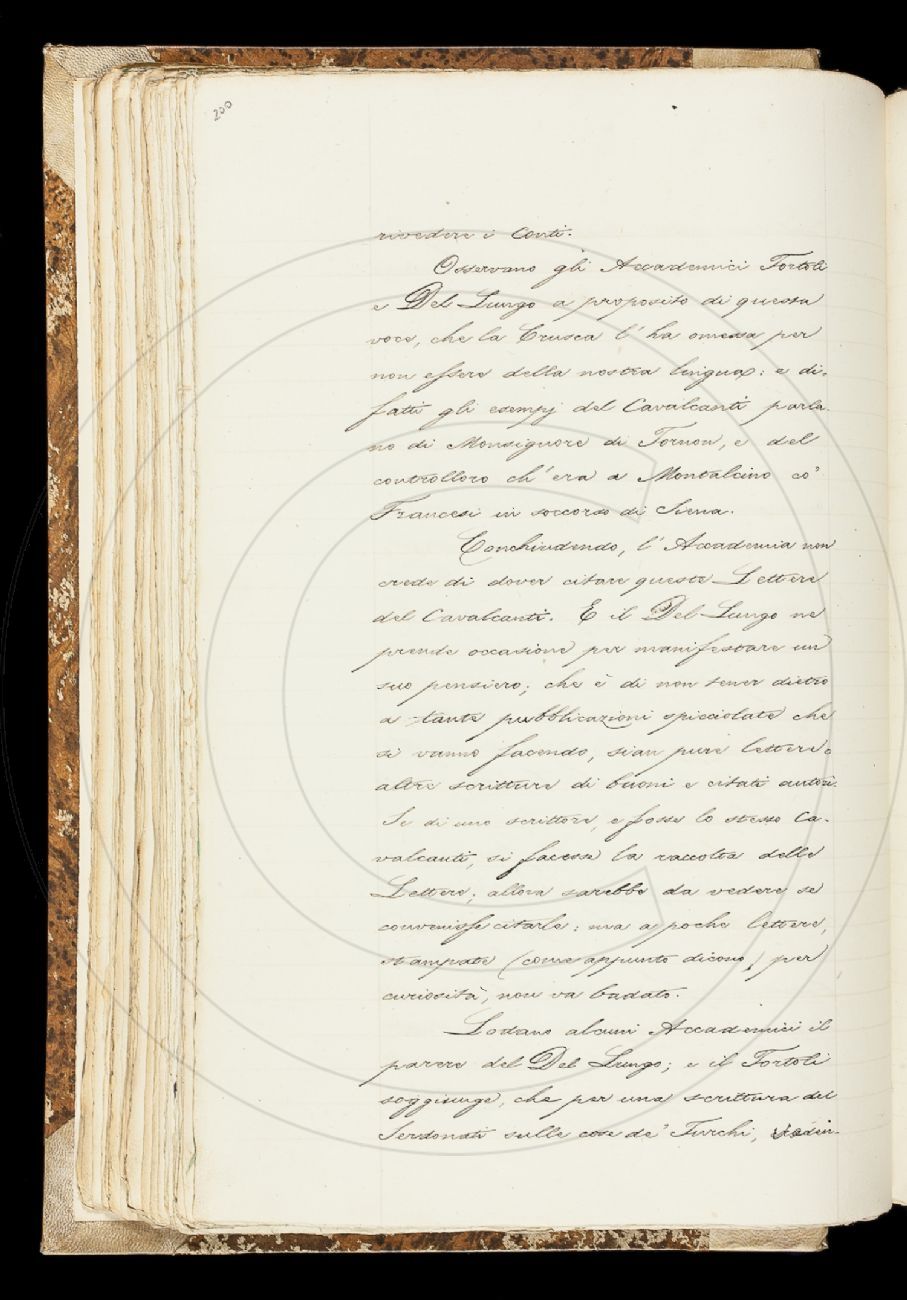 200
rivedere i Conti.
Osservano gli Accademici Tortoli
e Del Lungo a proposito di questa
voce, che la Crusca l'ha omessa per
non essere della nostra lingua: e di-
fatti gli esempj del Cavalcanti parla
no di Monsignore di Tornon, e del
controlloro ch'era a Montalcino co'
Francesi in soccorso di Siena.
Conchiudendo, l'Accademia non
crede di dover citare queste Lettere
del Cavalcanti. E il Del-Lungo ne
prende occasione per manifestare un
suo pensiero; che è di non tener dietro
a tante pubblicazioni spicciolate che
si vanno facendo, sian pure lettere o
altre scritture di buoni e citati autori.
Se di uno scrittore, e fosse lo stesso Ca-
valcanti, si facesse la raccolta delle
Lettere; allora sarebbe da vedere se
convenisse citarle: ma a poche lettere,
stampate (come appunto dicono) per
curiosità, non va badato.
Lodano alcuni Accademici il
parere del Del Lungo; e il Tortoli
soggiunge, che per una scrittura del
Serdonati sulle cose de' Turchi,